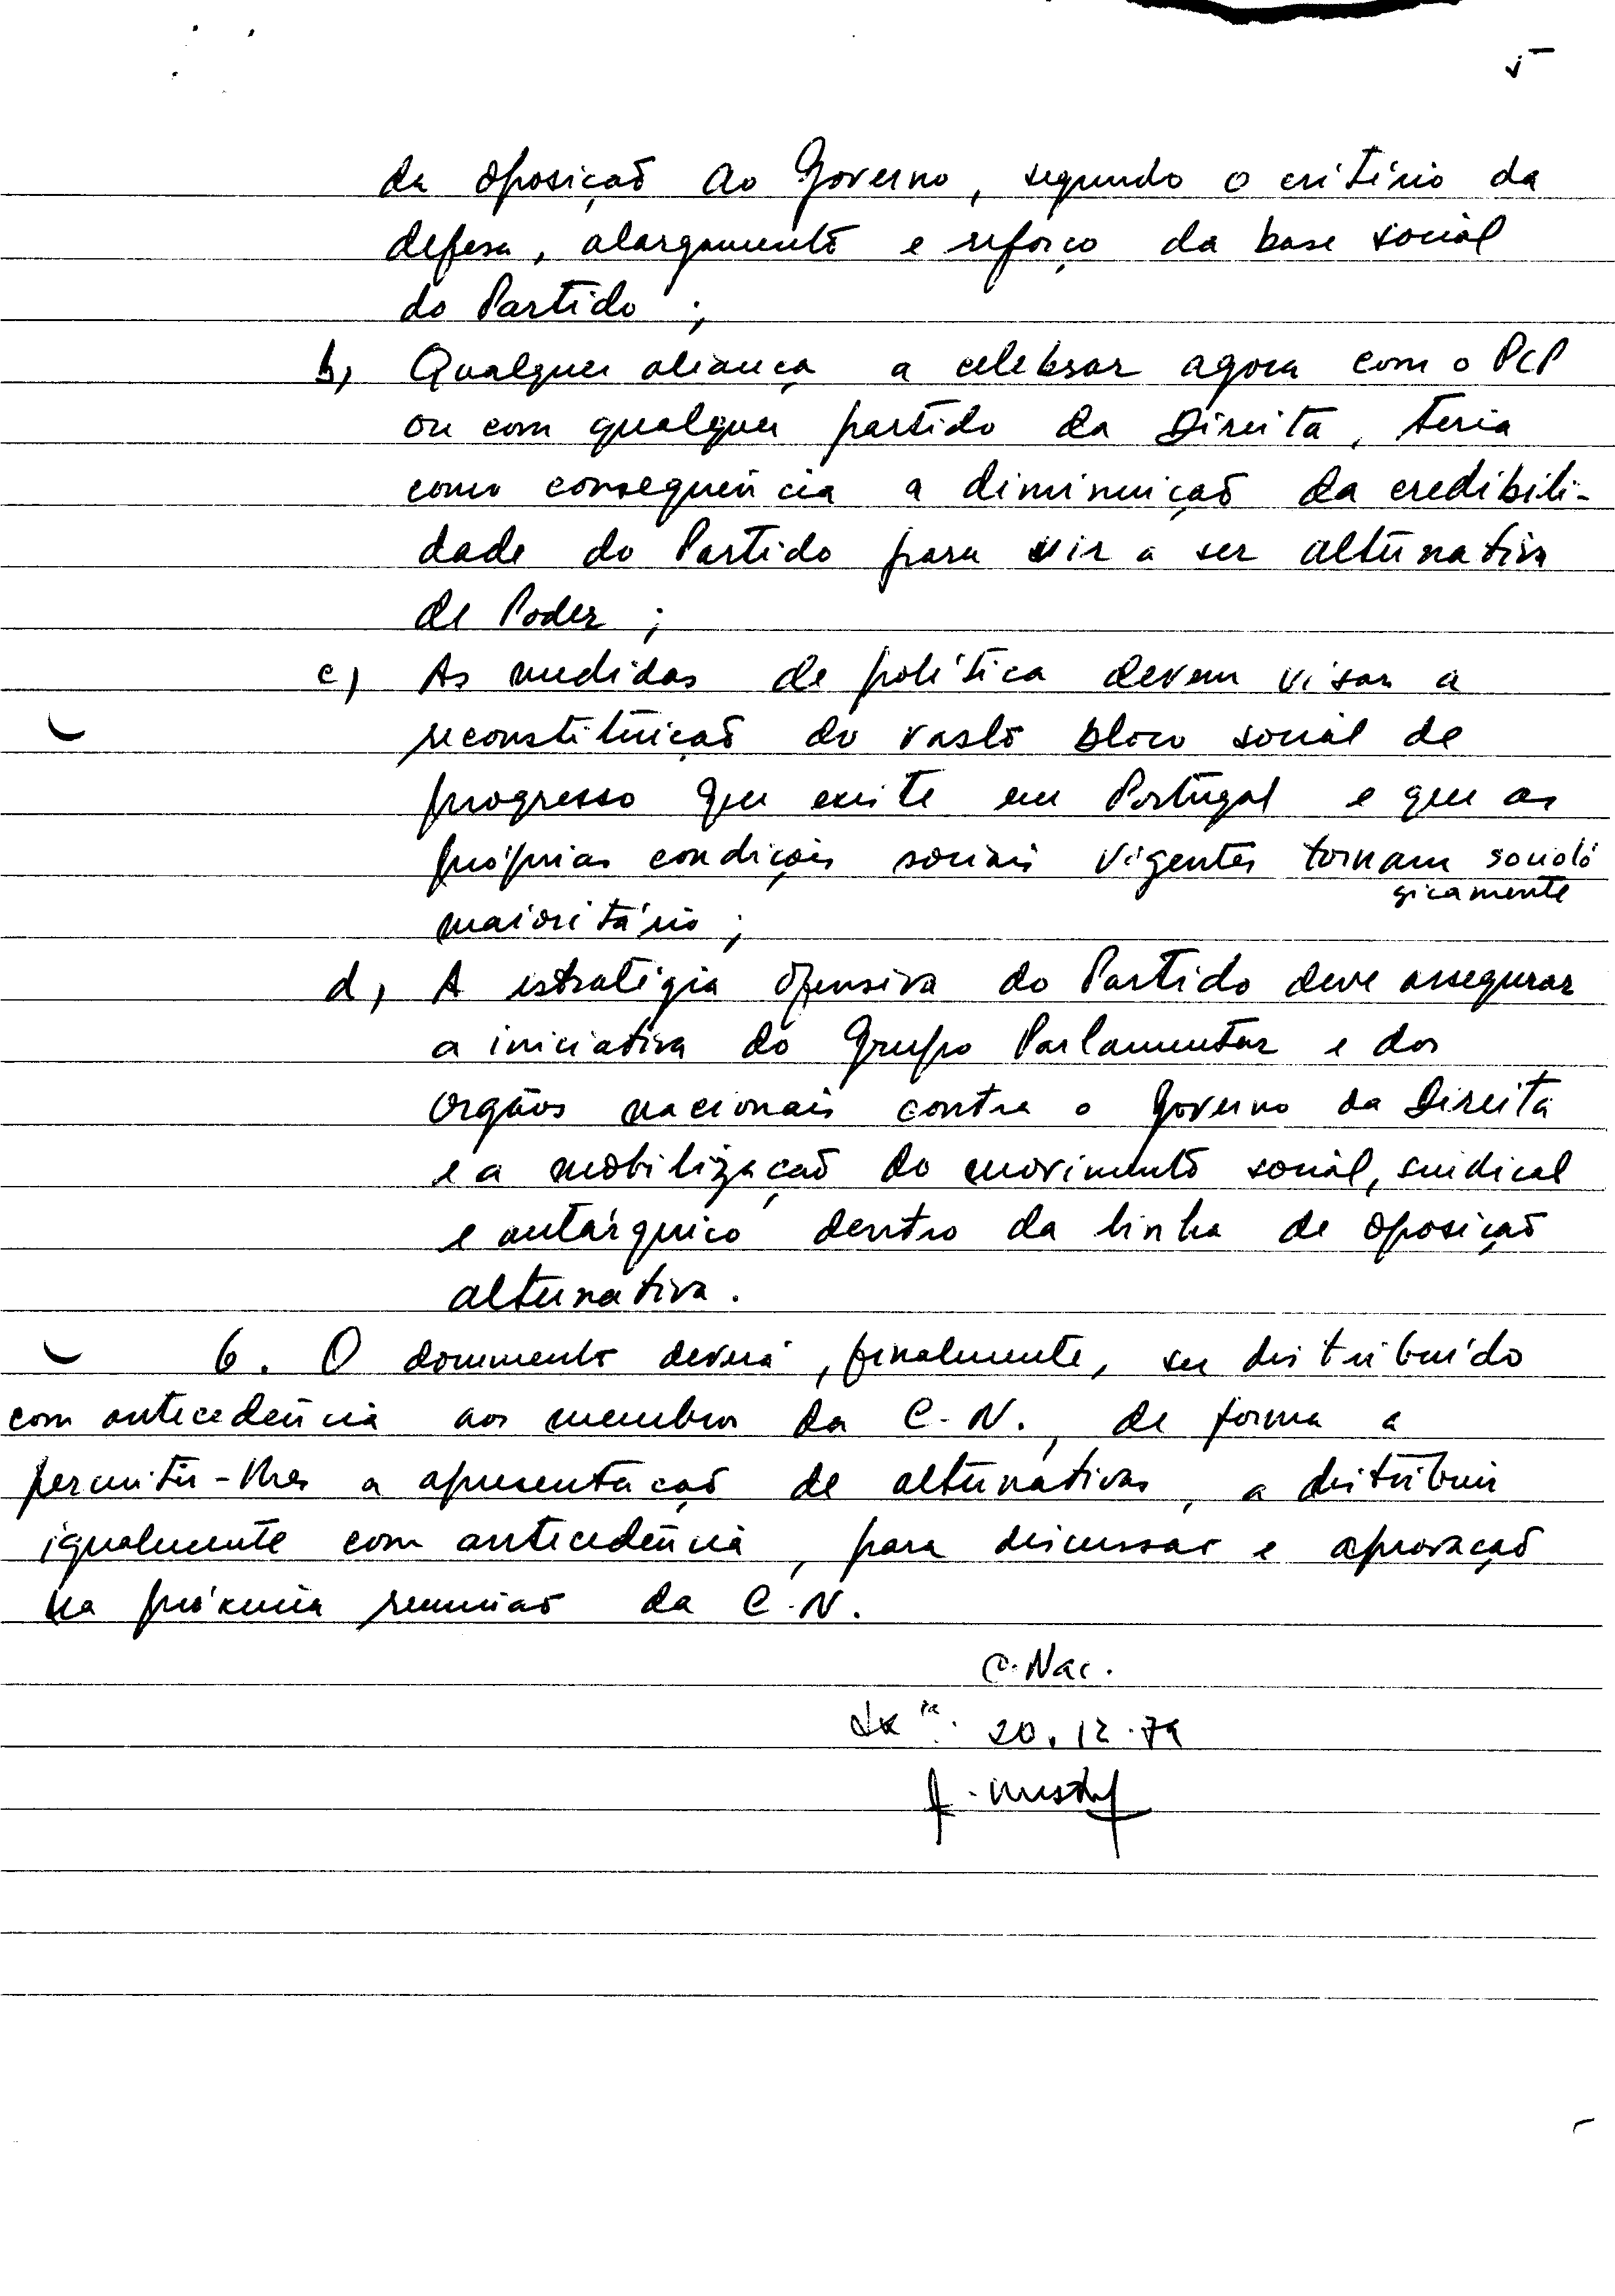 5
da oposição ao Governo, segundo o critério da
defesa, alargamento e reforço da base social
do Partido;
b) Qualquer aliança a celebrar agora com o PCP
ou com qualquer partido da Direita, teria
como consequência a diminuição da credibili-
dade do Partido para vir a ser alternativa
de Poder;
c) As medidas de política devem visar a
reconstituição do vasto bloco social de
progresso que existe em Portugal e que as
próprias condições sociais vigentes tornam socioló
gicamente
maioritário;
d) A estratégia ofensiva do Partido deve assegurar
a iniciativa do Grupo Parlamentar e dos
orgãos nacionais contra o Governo da Direita
e a mobilização do movimento social, sindical
e autárquico dentro da linha de oposição
alternativa.
6. O documento deverá, finalmente, ser distribuído
com antecedência aos membros da C.N., de forma a
permitir-lhes a apresentação de alternativas, a distribuir
igualmente com antecedência, para discussão e aprovação
na próxima reunião da C.N.
C. Nac.
Lxª. 20.12.79